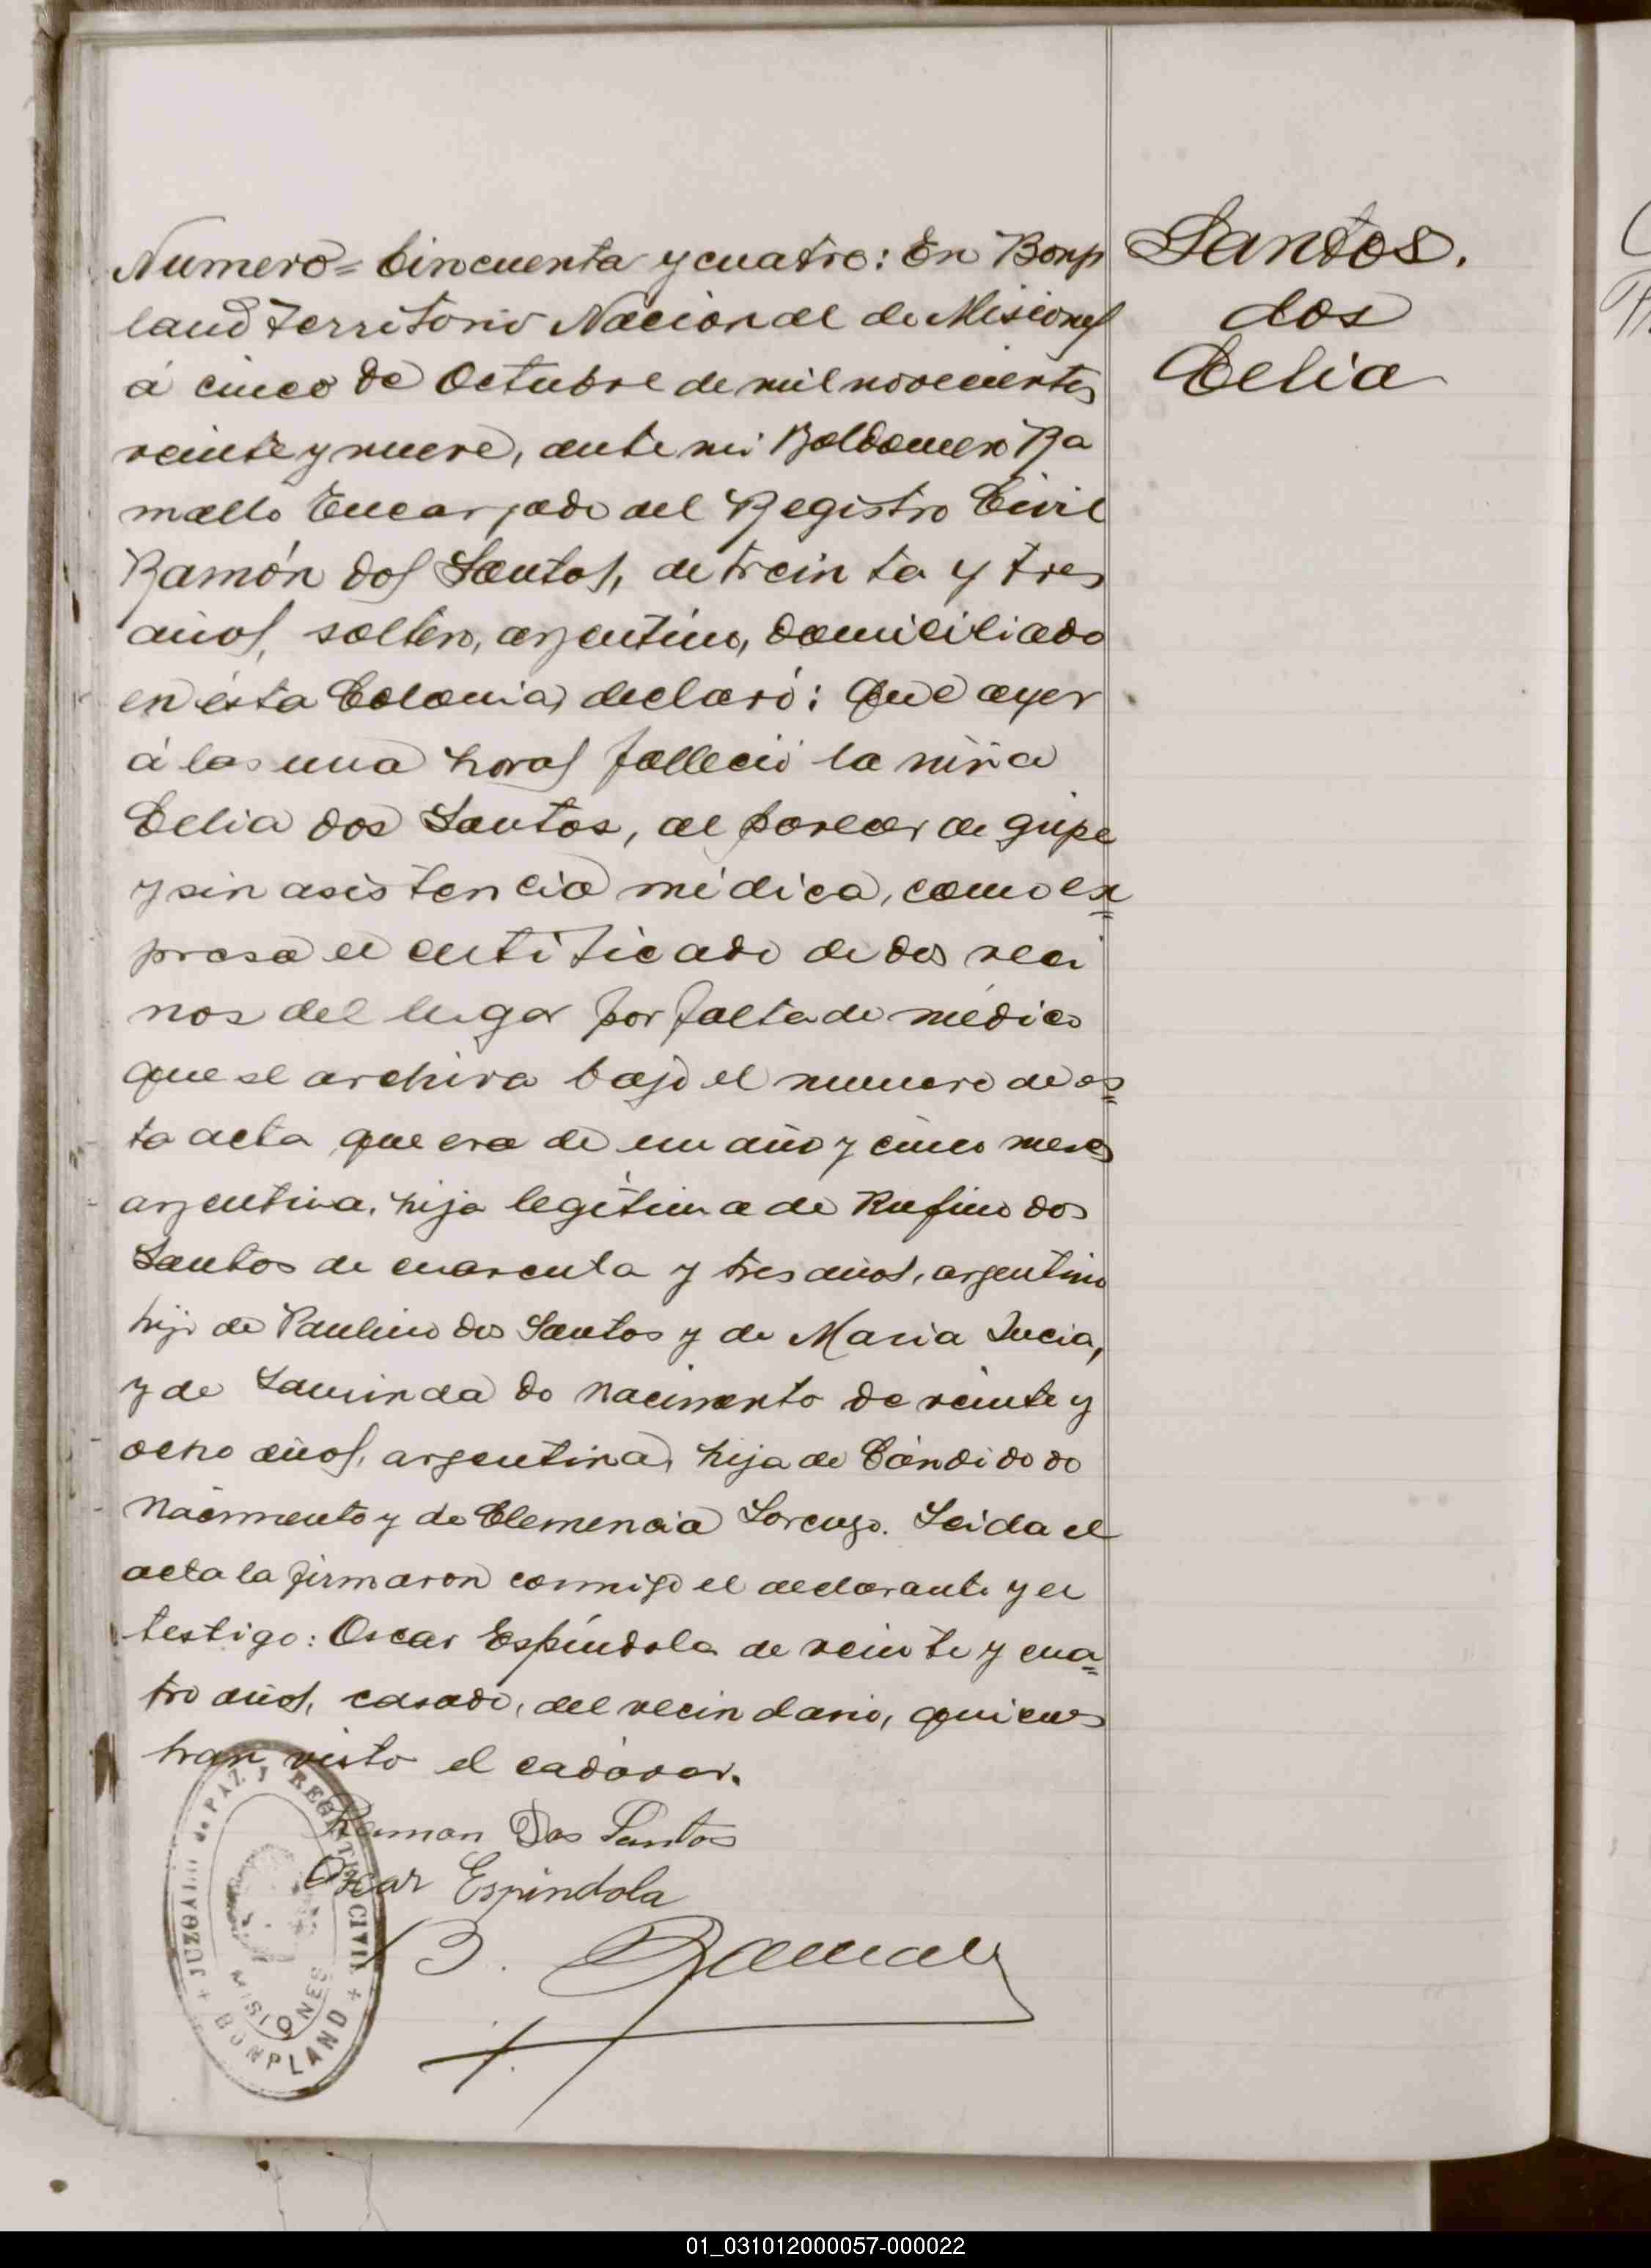 Numero = Cincuenta y cuatro: En Bonp
land Territorio Nacional de Misiones
á cinco de Octubre de mil novecientos
veinte y nueve, ante mi Baldomero Ra
mallo Encargado del Registro Civil
Ramón dos Santos, de treinta y tres
años, soltero, argentino, domiciliado
en ésta Colonia, declaró: Que ayer
á las una horas falleció la niña
Celia dos Santos, al parecer de gripe
y sin asistencia médica, como ex=
presa el certificado de dos veci
nos del lugar por falta de médico
que se archiva bajo el numero de es=
ta acta, que era de un año y cinco meses
argentina, hija legítima de Rufino dos
Santos de cuarenta y tres años, argentino
hijo de Paulino dos Santos y de Maria Lucia,
y de Laurinda do Nacimento de veinte y
ocho años, argentina, hija de Cándido do
Nacimento y de Clemencia Lorenzo. Leida el
acta la firmaron conmigo el declarante y el
testigo: Oscar Espíndola de veinte y cua=
tro años, casado, del vecindario, quienes
han visto el cadáver.
Ramon Dos Santos
Oscar Espindola
B. Ramallo
JUZGADO de PAZ y REGISTRO CIVIL
MISIONES
BONPLAND
Santos.
dos
Celia
01_031012000057-000022